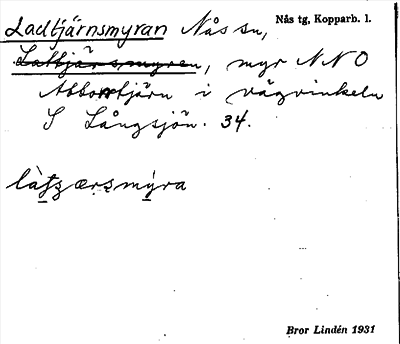 Ladtjärnsmyran Nås sn, Nås tg, Kopparb. l.
Lattjärnsmyren, myr NNO
Abborrtjärn i vägvinkeln
S Långsjön. 34.
Bror Lindén 1931